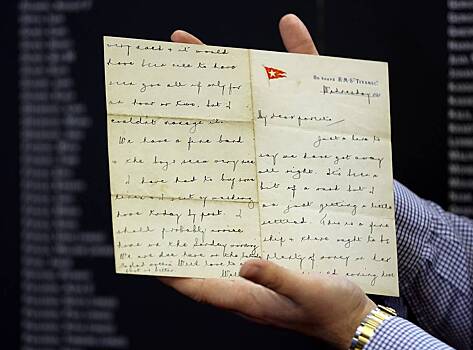 On board R.M.S. "TITANIC".
Wednesday 191
My dear parents,
Just a line to
say we have got away
all right. It's been a
bit of a rush but I
am just getting a little
settled. This is a fine
ship & there ought to be
plenty of money on her
missed coming home
very much & it would
have been nice to have
seen you all if only for
an hour or two, but I
couldn't manage it.
We have a fine band
& the boys seem very nice
I have had to buy some
linen & I sent my washing
home today by post. I
shall probably arrive
home on the Sunday morning
We are due here on the
glad mothers With love to a
foot is better